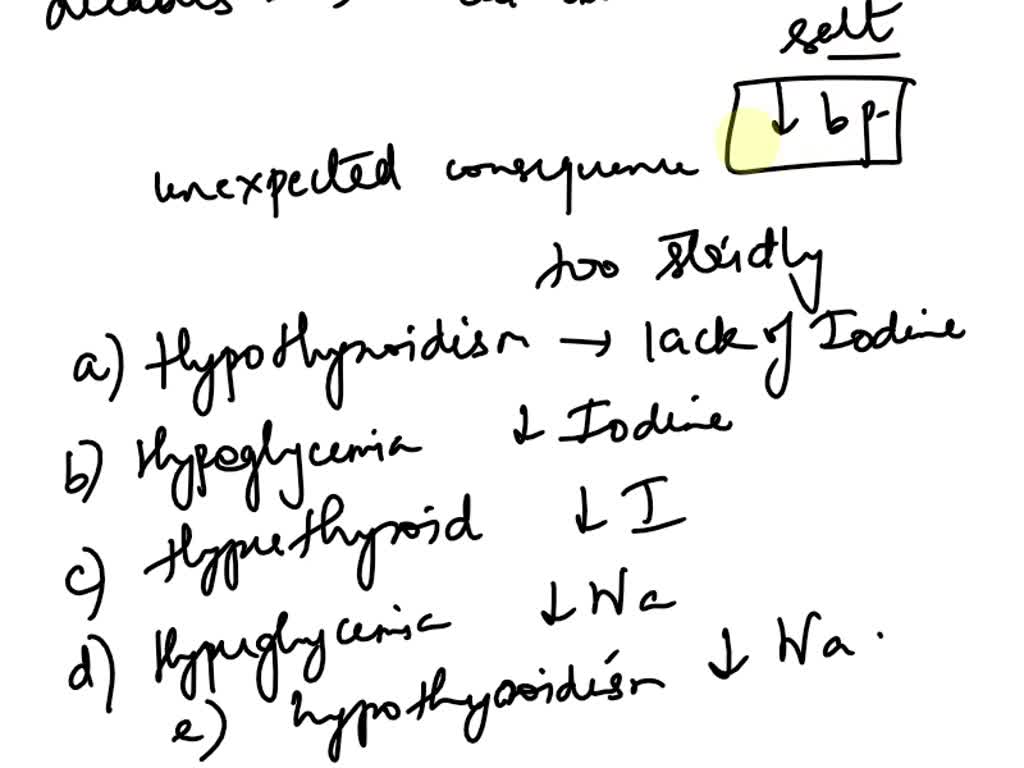 salt
↓ bp-
unexpected consequence
too strictly
a) Hypothyroidism → lack of Iodine
b) Hypoglycemia ↓ Iodine
c) Hyperthyroid ↓ I
d) Hyperglycemia ↓ Na
e) hypothyroidism ↓ Na.